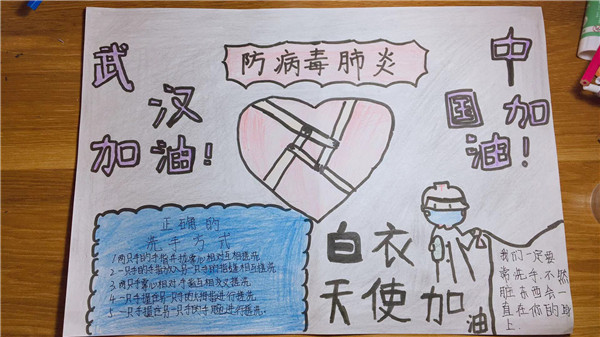 防病毒肺炎
武
汉
加油!
中
国加
油!
正确的
洗手方式
1.两只手的手指并拢掌心相对互相搓洗
2.一只手的手指放入另一只手的指缝相互搓洗
3.两只掌心相对手指互相交叉搓洗
4.一只手握住另一只手的大拇指进行搓洗
5.一只手握住另一只手的手腕进行搓洗.
白衣
天使加油
我们一定要
常洗手,不然
脏东西会一
直在你的身
上